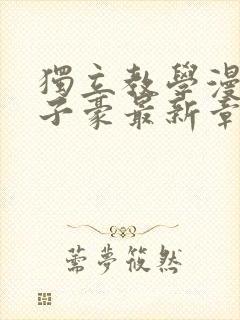 獨立教學漫
子豪最新章
薷夢筱然